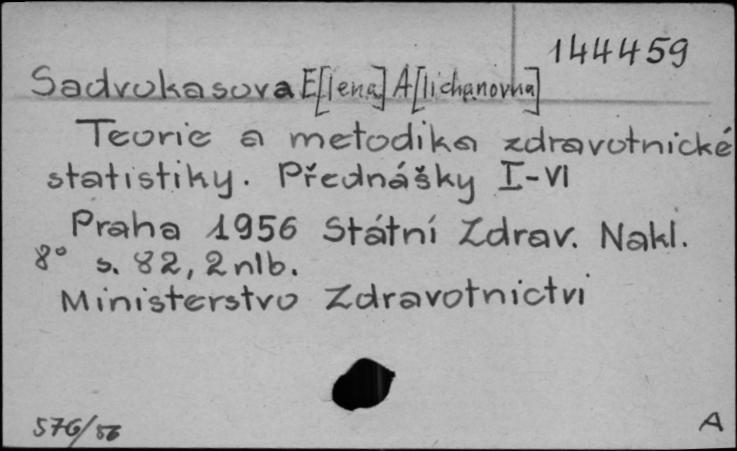 144459
Sadvokasova E[lena] A[lichanovna]
Teorie a metodika zdravotnické
statistiky. Přednášky I-VI
Praha 1956 Státní Zdrav. Nakl.
8° s. 82, 2 nlb.
Ministerstvo Zdravotnictvi
576/56
A